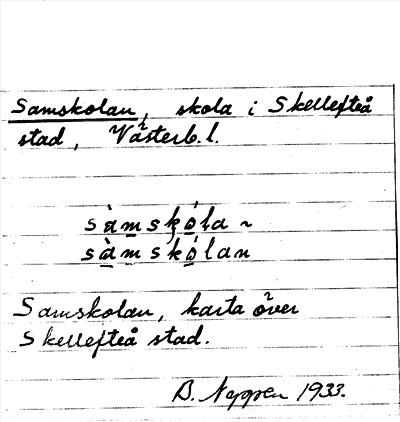 Samskolan, skola i Skellefteå
stad, Västerb. l.
sàmskóla ~
sàmskólan
Samskolan, karta över
Skellefteå stad.
B. 1933.